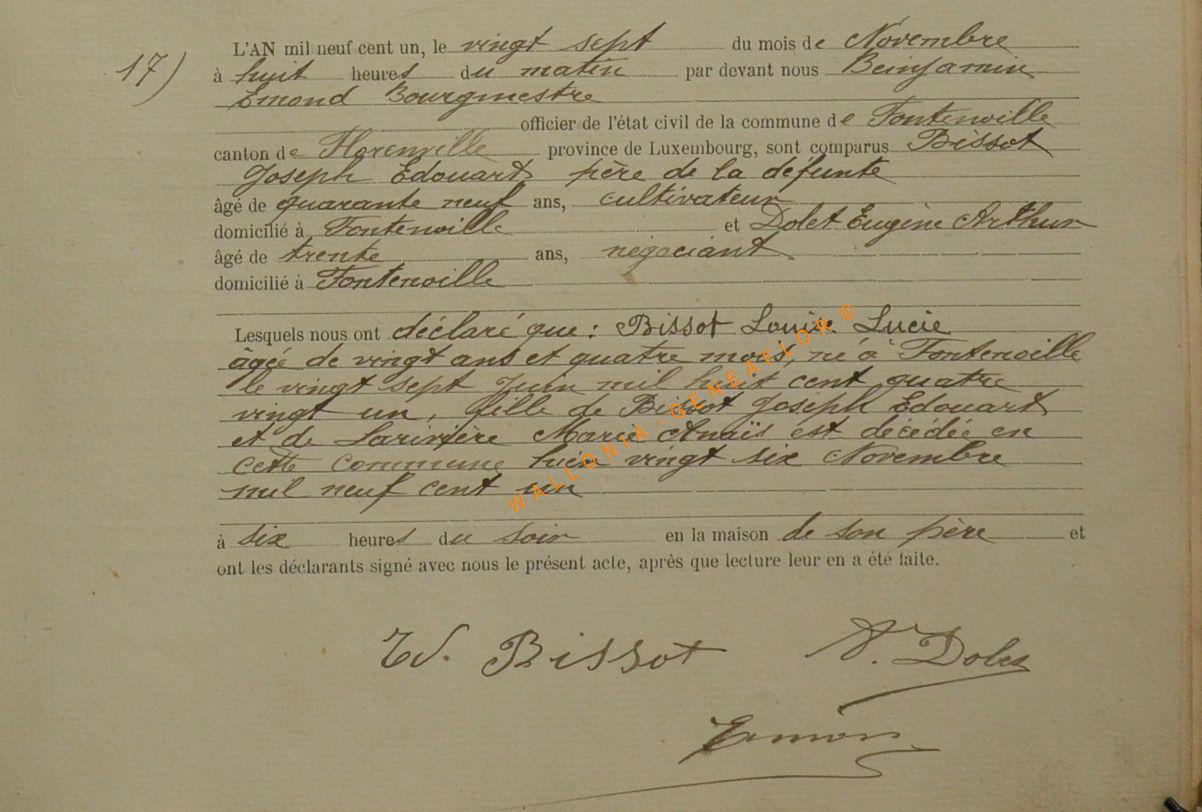 17)
L'AN mil neuf cent un, le vingt sept du mois de Novembre
à huit heures du matin par devant nous Benjamin
Emond Bourgmestre
officier de l'état civil de la commune de Fontenoille
canton de Florenville province de Luxembourg, sont comparus Bissot
Joseph Edouart père de la défunte
âgé de quarante neuf ans, cultivateur
domicilié à Fontenoille et Dolet Eugène Arthur
âgé de trente ans, négociant
domicilié à Fontenoille
Lesquels nous ont déclaré que : Bissot Louise Lucie
âgée de vingt ans et quatre mois, né à Fontenoille
le vingt sept Juin mil huit cent quatre
vingt un, fille de Bissot Joseph Edouart
et de Larivière Marie Anaïs est décédée en
cette commune hier vingt six Novembre
mil neuf cent un
à six heures du soir en la maison de son père et
ont les déclarants signé avec nous le présent acte, après que lecture leur en a été faite.
Bissot A. Dolet
Emond
WALLONIA-GENEAFLOR ©